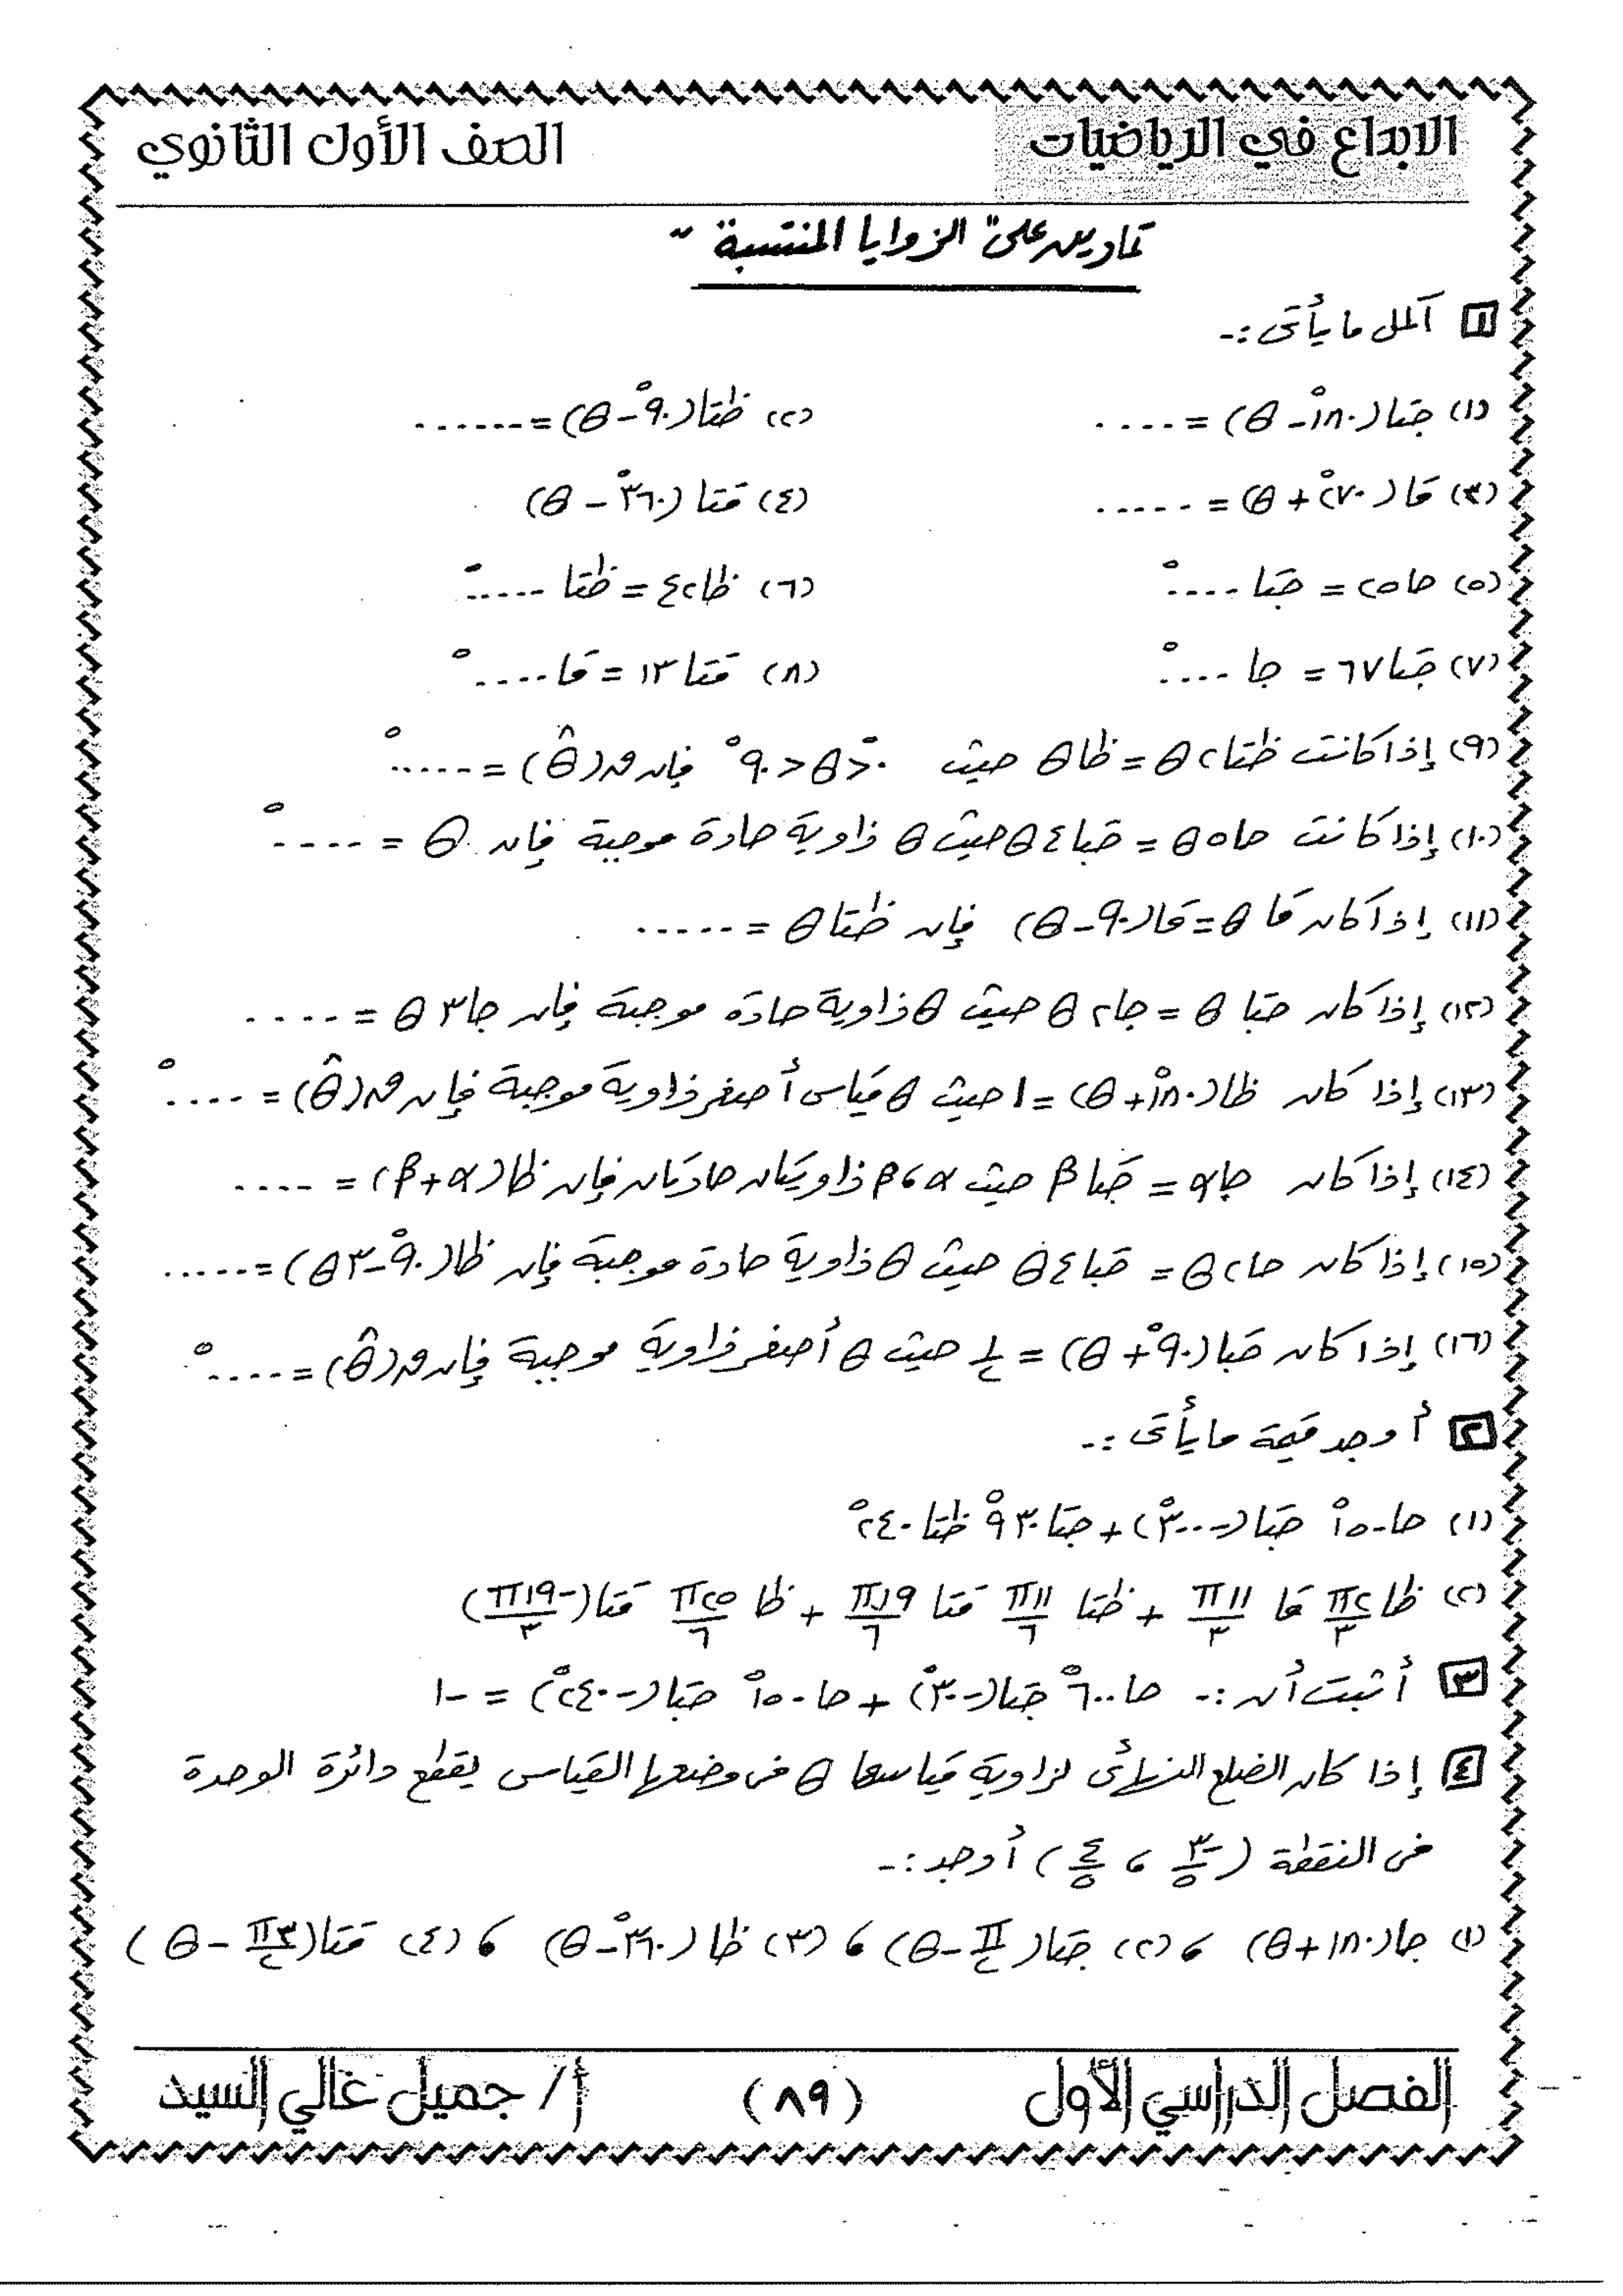 الابداع في الرياضيات
الصف الأول الثانوي
تمارين على " الزوايا المنتسبة "
١ أكمل ما يأتى :-
(١) جتا(١٨٠° - θ) = ....
(٢) ظتا(٩٠° - θ) = ......
(٣) قا(٢٧٠° + θ) = .....
(٤) قتا(٣٦٠° - θ)
(٥) حا ٢٥ = جتا ....°
(٦) ظا ٤٢ = ظتا .....°
(٧) جتا ٦٧ = جا ....°
(٨) قتا ١٣ = قا ....°
(٩) إذا كانت ظتا ٢θ = ظا θ حيث ٠° < θ < ٩٠° فإن ق(θ̂) = .....°
(١٠) إذا كانت حا ٥θ = جتا ٤θ حيث θ زاوية حادة موجبة فإن θ = ....°
(١١) إذا كان قا θ = قا(٩٠ - θ) فإن ظتا θ = .....
(١٢) إذا كان جتا θ = جا ٢θ حيث θ زاوية حادة موجبة فإن جا ٣θ = ....
(١٣) إذا كان ظا(١٨٠° + θ) = ١ حيث θ قياس أصغر زاوية موجبة فإن ق(θ̂) = ....°
(١٤) إذا كان جا α = جتا β حيث α ، β زاويتان حادتان فإن ظا(α + β) = ....
(١٥) إذا كان حا ٢θ = جتا ٤θ حيث θ زاوية حادة موجبة فإن ظا(٩٠° - ٣θ) = .....
(١٦) إذا كان جتا(٩٠° + θ) = ١/٢ حيث θ أصغر زاوية موجبة فإن ق(θ̂) = ....°
٢ أوجد قيمة ما يأتى :-
(١) حا ١٥٠° جتا(-٣٠٠°) + جتا ٩٣٠° ظتا ٢٤٠°
(٢) ظا ٢π/٣ قا ١١π/٣ + ظتا ١١π/٦ قتا ١٩π/٦ + ظا ٢٥π/٦ قتا(-١٩π/٣)
٣ أثبت أن :- حا ٦٠٠° جتا(-٣٠°) + حا ١٥٠° جتا(-٢٤٠°) = -١
٤ إذا كان الضلع النهائى لزاوية قياسها θ فى وضعها القياسى يقطع دائرة الوحدة
فى النقطة (-٣/٥ ، ٤/٥) أوجد :-
(١) جا(١٨٠ + θ) ، (٢) جتا(π/٢ - θ) ، (٣) ظا(٣٦٠° - θ) ، (٤) قتا(٣π/٢ - θ)
الفصل الدراسي الأول
(٨٩)
أ/ جميل غالي السيد